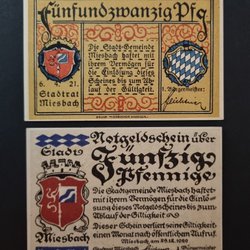 Fünfundzwanzig Pfg
Die Stadt-Gemeinde
Miesbach haftet mit
ihrem Vermögen für
die Einlösung dieses
Scheines bis zum Ab-
lauf der Gültigkeit.
6. 4. 21.
Stadtrat
Miesbach
1. Bürgermeister:
Notgeldschein über
Stadt
Fünfzig
Pfennige
Miesbach
Die Stadtgemeinde Miesbach haftet
mit ihrem Vermögen für die Einlö-
sung dieses Notgeldscheines bis zum
Ablauf der Gültigkeit
Dieser Schein verliert seine Gültigkeit
einen Monat nach öffentlichem Aufruf.
Miesbach am